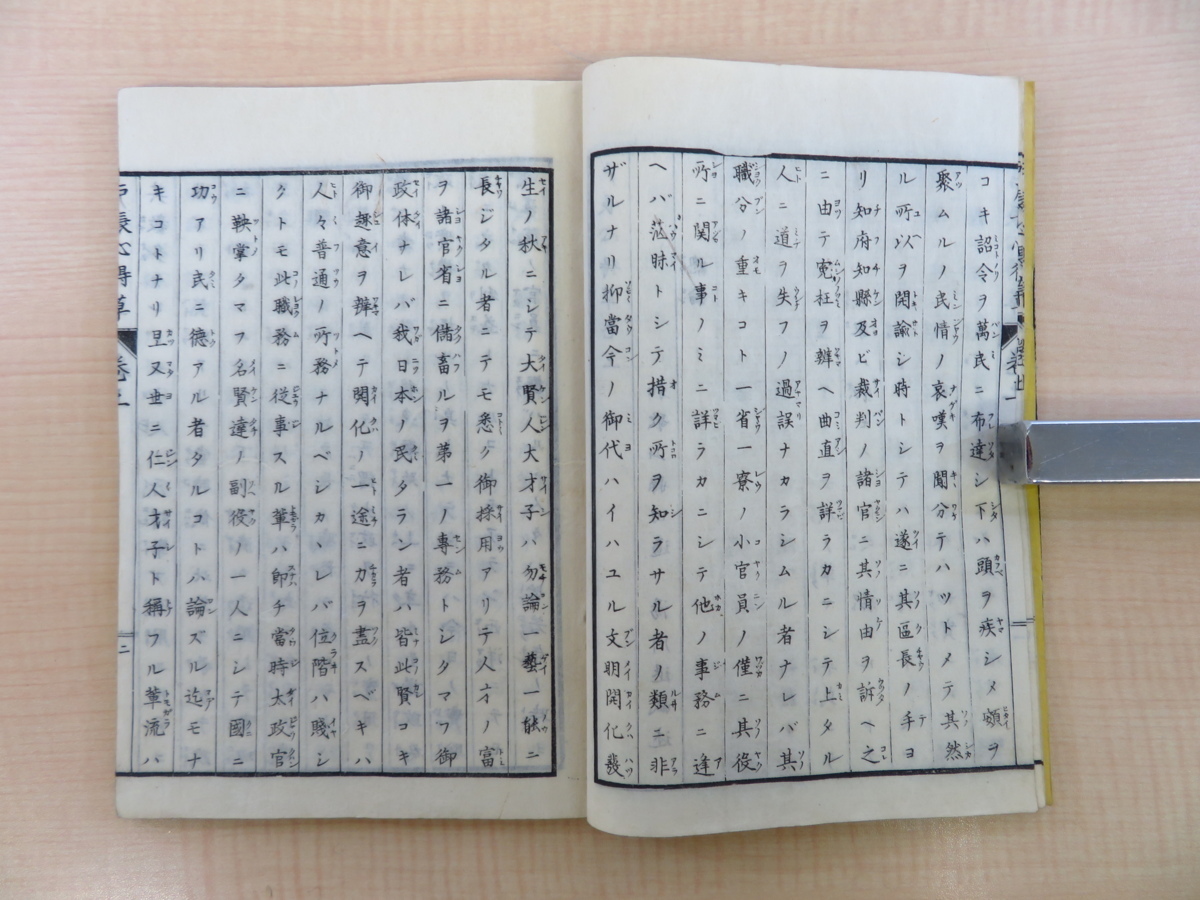 コキ詔令ヲ萬民ニ布達シ下ハ頭ヲ疾シメ頞ヲ
聚ムルノ民情ノ哀嘆ヲ聞分テハツトメテ其然
ル所以ヲ開諭シ時トシテハ遂ニ其區長ノ手ヨ
リ知府知縣及ビ裁判ノ諸官ニ其情由ヲ訴ヘ之
ニ由テ寃枉ヲ辨ヘ曲直ヲ詳ラカニシテ上タル
人ニ道ヲ失フノ過誤ナカラシムル者ナレバ其
職分ノ重キコト一省一寮ノ小官員ノ僅ニ其役
所ニ関ル事ノミニ詳ラカニシテ他ノ事務ニ逢
ヘバ茫昧トシテ措ク所ヲ知ラサル者ノ類ニ非
ザルナリ抑當今ノ御代ハイハユル文明開化發
生ノ秋ニシテ大賢人大才子ハ勿論一藝一能ニ
長ジタル者ニテモ悉ク御採用アリテ人才ノ富
ヲ諸官省ニ儲畜ルヲ第一ノ專務トシタマフ御
政体ナレバ我日本ノ民タラン者ハ皆此賢コキ
御趣意ヲ辨ヘテ開化ノ一途ニカヲ盡スベキハ
人々普通ノ所務ナルベシカヽレバ位階ハ賤シ
クトモ此職務ニ從事スル輩ハ即チ當時太政官
ニ鞅掌タマフ名賢達ノ副役ノ一人ニシテ國ニ
功アリ民ニ德アル者タルコトハ論ズル迄モナ
キコトナリ且又世ニ仁人才子ト稱フル輩流ハ
戸長心得草 卷之一 二